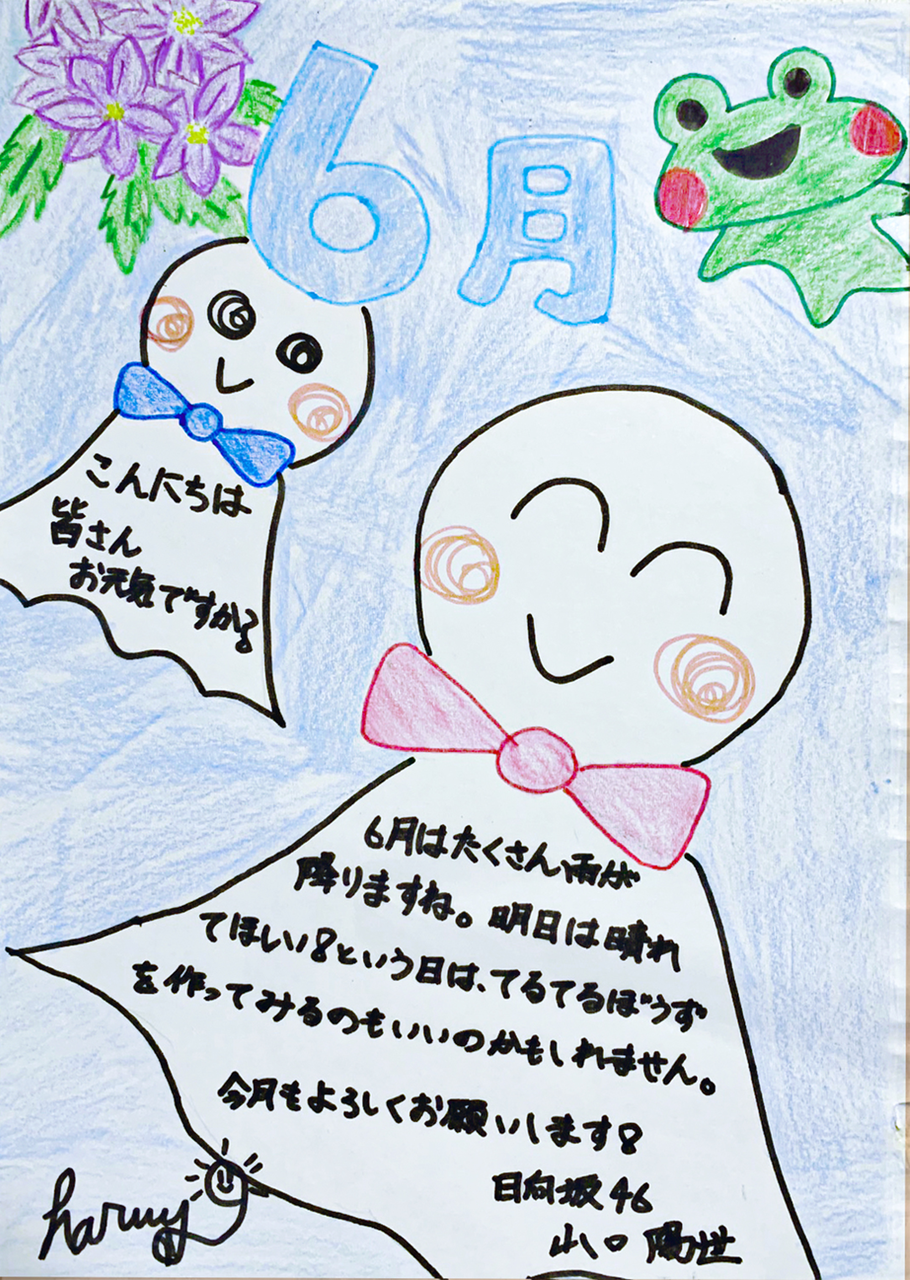 6月
こんにちは
皆さん
お元気ですか?
6月はたくさん雨が
降りますね。明日は晴れ
てほしい!という日は、てるてるぼうず
を作ってみるのもいいのかもしれません。
今月もよろしくお願いします!
日向坂46
山口 陽世
haruy